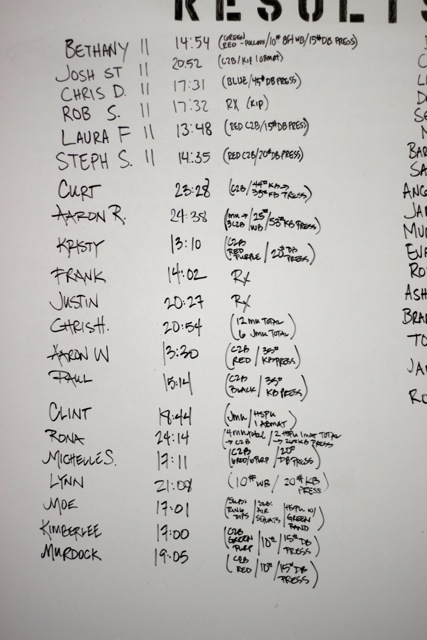 RESULTS
BETHANY II 14:54 (GREEN RED - PULLUPS/10# BFH WB/15# DB PRESS)
JOSH ST II 20:52 (C2B/KIP 1 ABMAT)
CHRIS D. II 17:31 (BLUE/45# DB PRESS)
ROB S. II 17:32 RX (KIP)
LAURA F II 13:48 (RED C2B/15# DB PRESS)
STEPH S. II 14:35 (RED C2B/20# DB PRESS)
CURT 23:28 (C2B/44# KB → 35# KB PRESS)
AARON R. 24:38 (MU → 3 C2B/25# WB/53# KB PRESS)
KRISTY 13:10 (C2B RED PURPLE/20# DB PRESS)
FRANK 14:02 RX
JUSTIN 20:27 RX
CHRIS H. 20:54 (12 MU TOTAL 6 JMU TOTAL)
AARON W 13:30 (C2B RED/35# KB PRESS)
PAUL 15:14 (C2B BLACK/35# KB PRESS)
CLINT 18:44 (JMU/HSPU 1 ABMAT)
RONA 24:14 (4 MU → C2B/2 HSPU 1 MAT TOTAL → KB PRESS)
MICHELLE S. 17:11 (C2B GRED/PURP/20# DB PRESS)
LYNN 21:08 (10# WB/20# KB PRESS)
MOE 17:01 (SUB: RING DIPS/SUB: AIR SQUATS/HSPU W/ GREEN BAND)
KIMBERLEE 17:00 (C2B GREEN PURP/10#/15# DB PRESS)
MURDOCK 19:05 (C2B RED/10#/15# DB PRESS)
BAR
SA
ANG
JA
MU
EVA
RO
ASH
BRA
TO
JA
RO